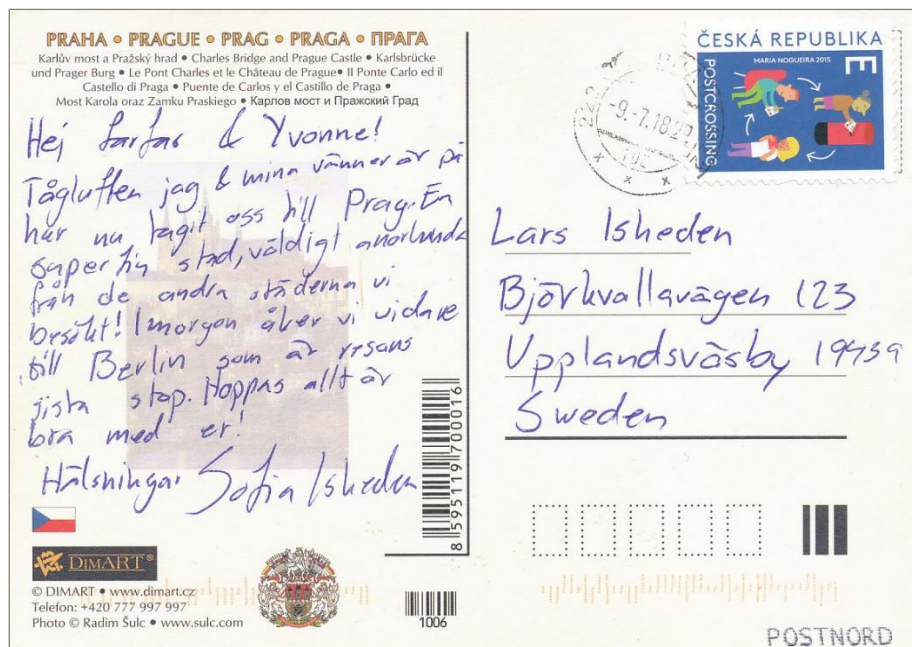 PRAHA • PRAGUE • PRAG • PRAGA • ПРАГА
Karlův most a Pražský hrad • Charles Bridge and Prague Castle • Karlsbrücke
und Prager Burg • Le Pont Charles et le Château de Prague • Il Ponte Carlo ed il
Castello di Praga • Puente de Carlos y el Castillo de Praga •
Most Karola oraz Zamku Praskiego • Карлов мост и Пражский Град
Hej farfar & Yvonne!
Tågluffen jag & mina vänner är på
har nu tagit oss till Prag. En
superfin stad, väldigt annorlunda
från de andra städerna vi
besökt! Imorgon åker vi vidare
till Berlin som är resans
sista stop. Hoppas allt är
bra med er!
Hälsningar Sofia Isheden
8 595119 700016
DIMART®
© DIMART • www.dimart.cz
Telefon: +420 777 997 997
Photo © Radim Šulc • www.sulc.com
1006
-9.-7.18
ČESKÁ REPUBLIKA
MARIA NOGUEIRA 2015
E
POSTCROSSING
Lars Isheden
Björkvallavägen 123
Upplandsväsby 19439
Sweden
POSTNORD